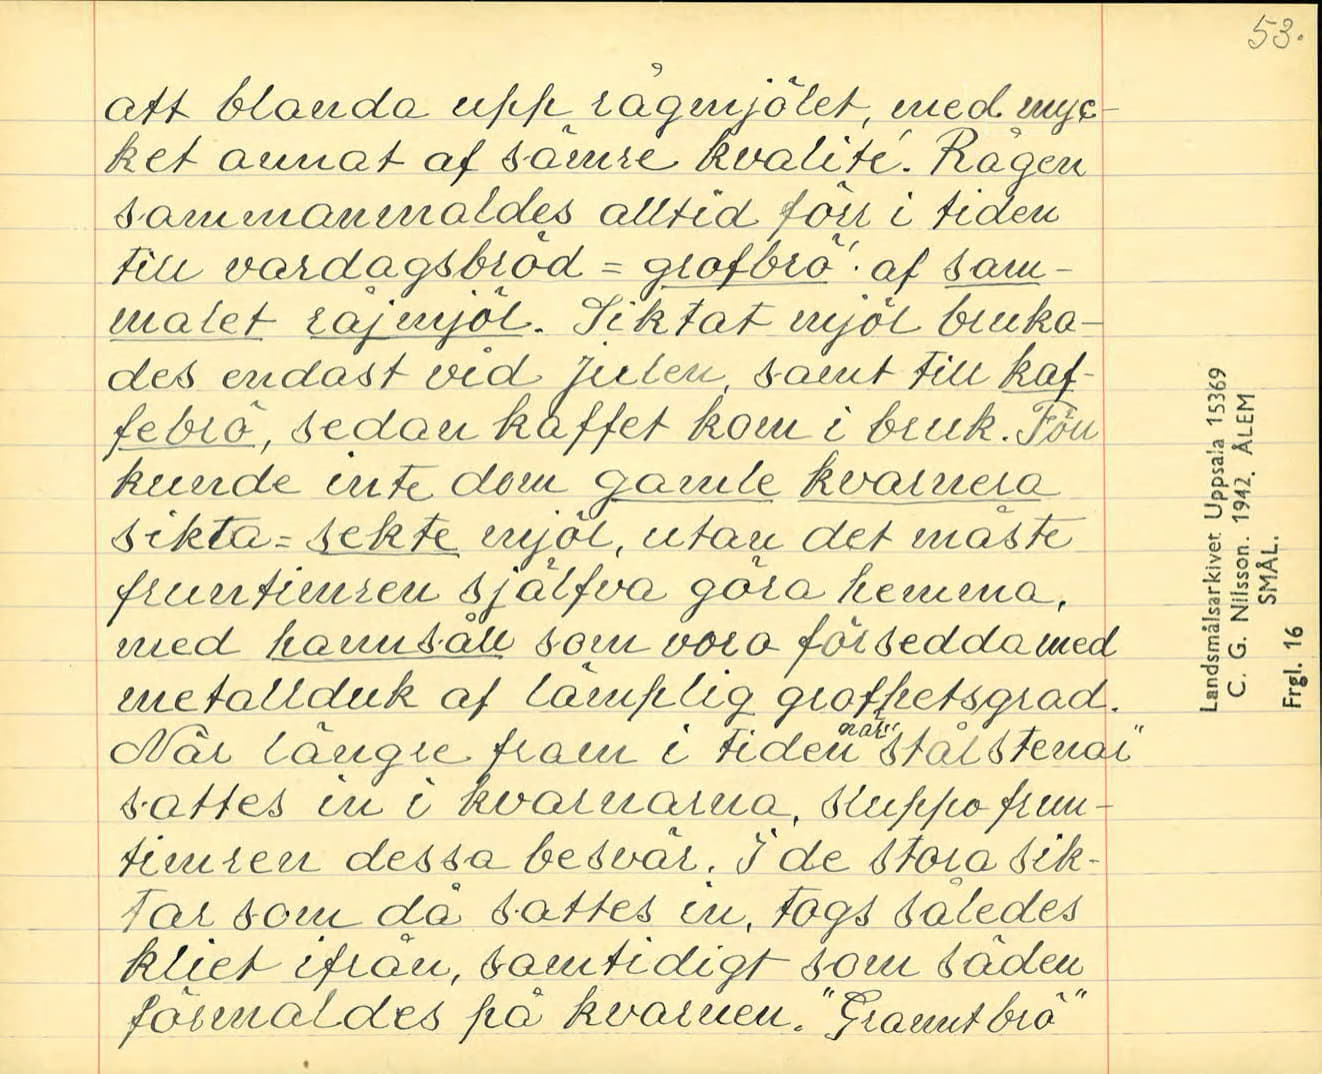 53.
att blanda upp rågmjölet, med myc-
ket annat af sämre kvalité. Rågen
sammanmaldes alltid förr i tiden
till vardagsbröd = grofbrö'. af sam-
malet råjmjöl. Siktat mjöl bruka-
des endast vid julen, samt till kaf-
febrö, sedan kaffet kom i bruk. Förr
kunde inte dom gamle kvarnera
sikta = sekte mjöl, utan det måste
fruntimren själfva göra hemma,
med hannsåll som voro försedda med
metallduk af lämplig grofhetsgrad.
När längre fram i tiden när "stålstenar"
sattes in i kvarnarna, sluppo frun-
timren dessa besvär. I de stora sik-
tar som då sattes in, togs således
kliet ifrån, samtidigt som säden
förmaldes på kvarnen. "Granntbrö"
Landsmålsarkivet Uppsala 15369
C. G. Nilsson. 1942. ÅLEM
SMÅL.
Frgl. 16